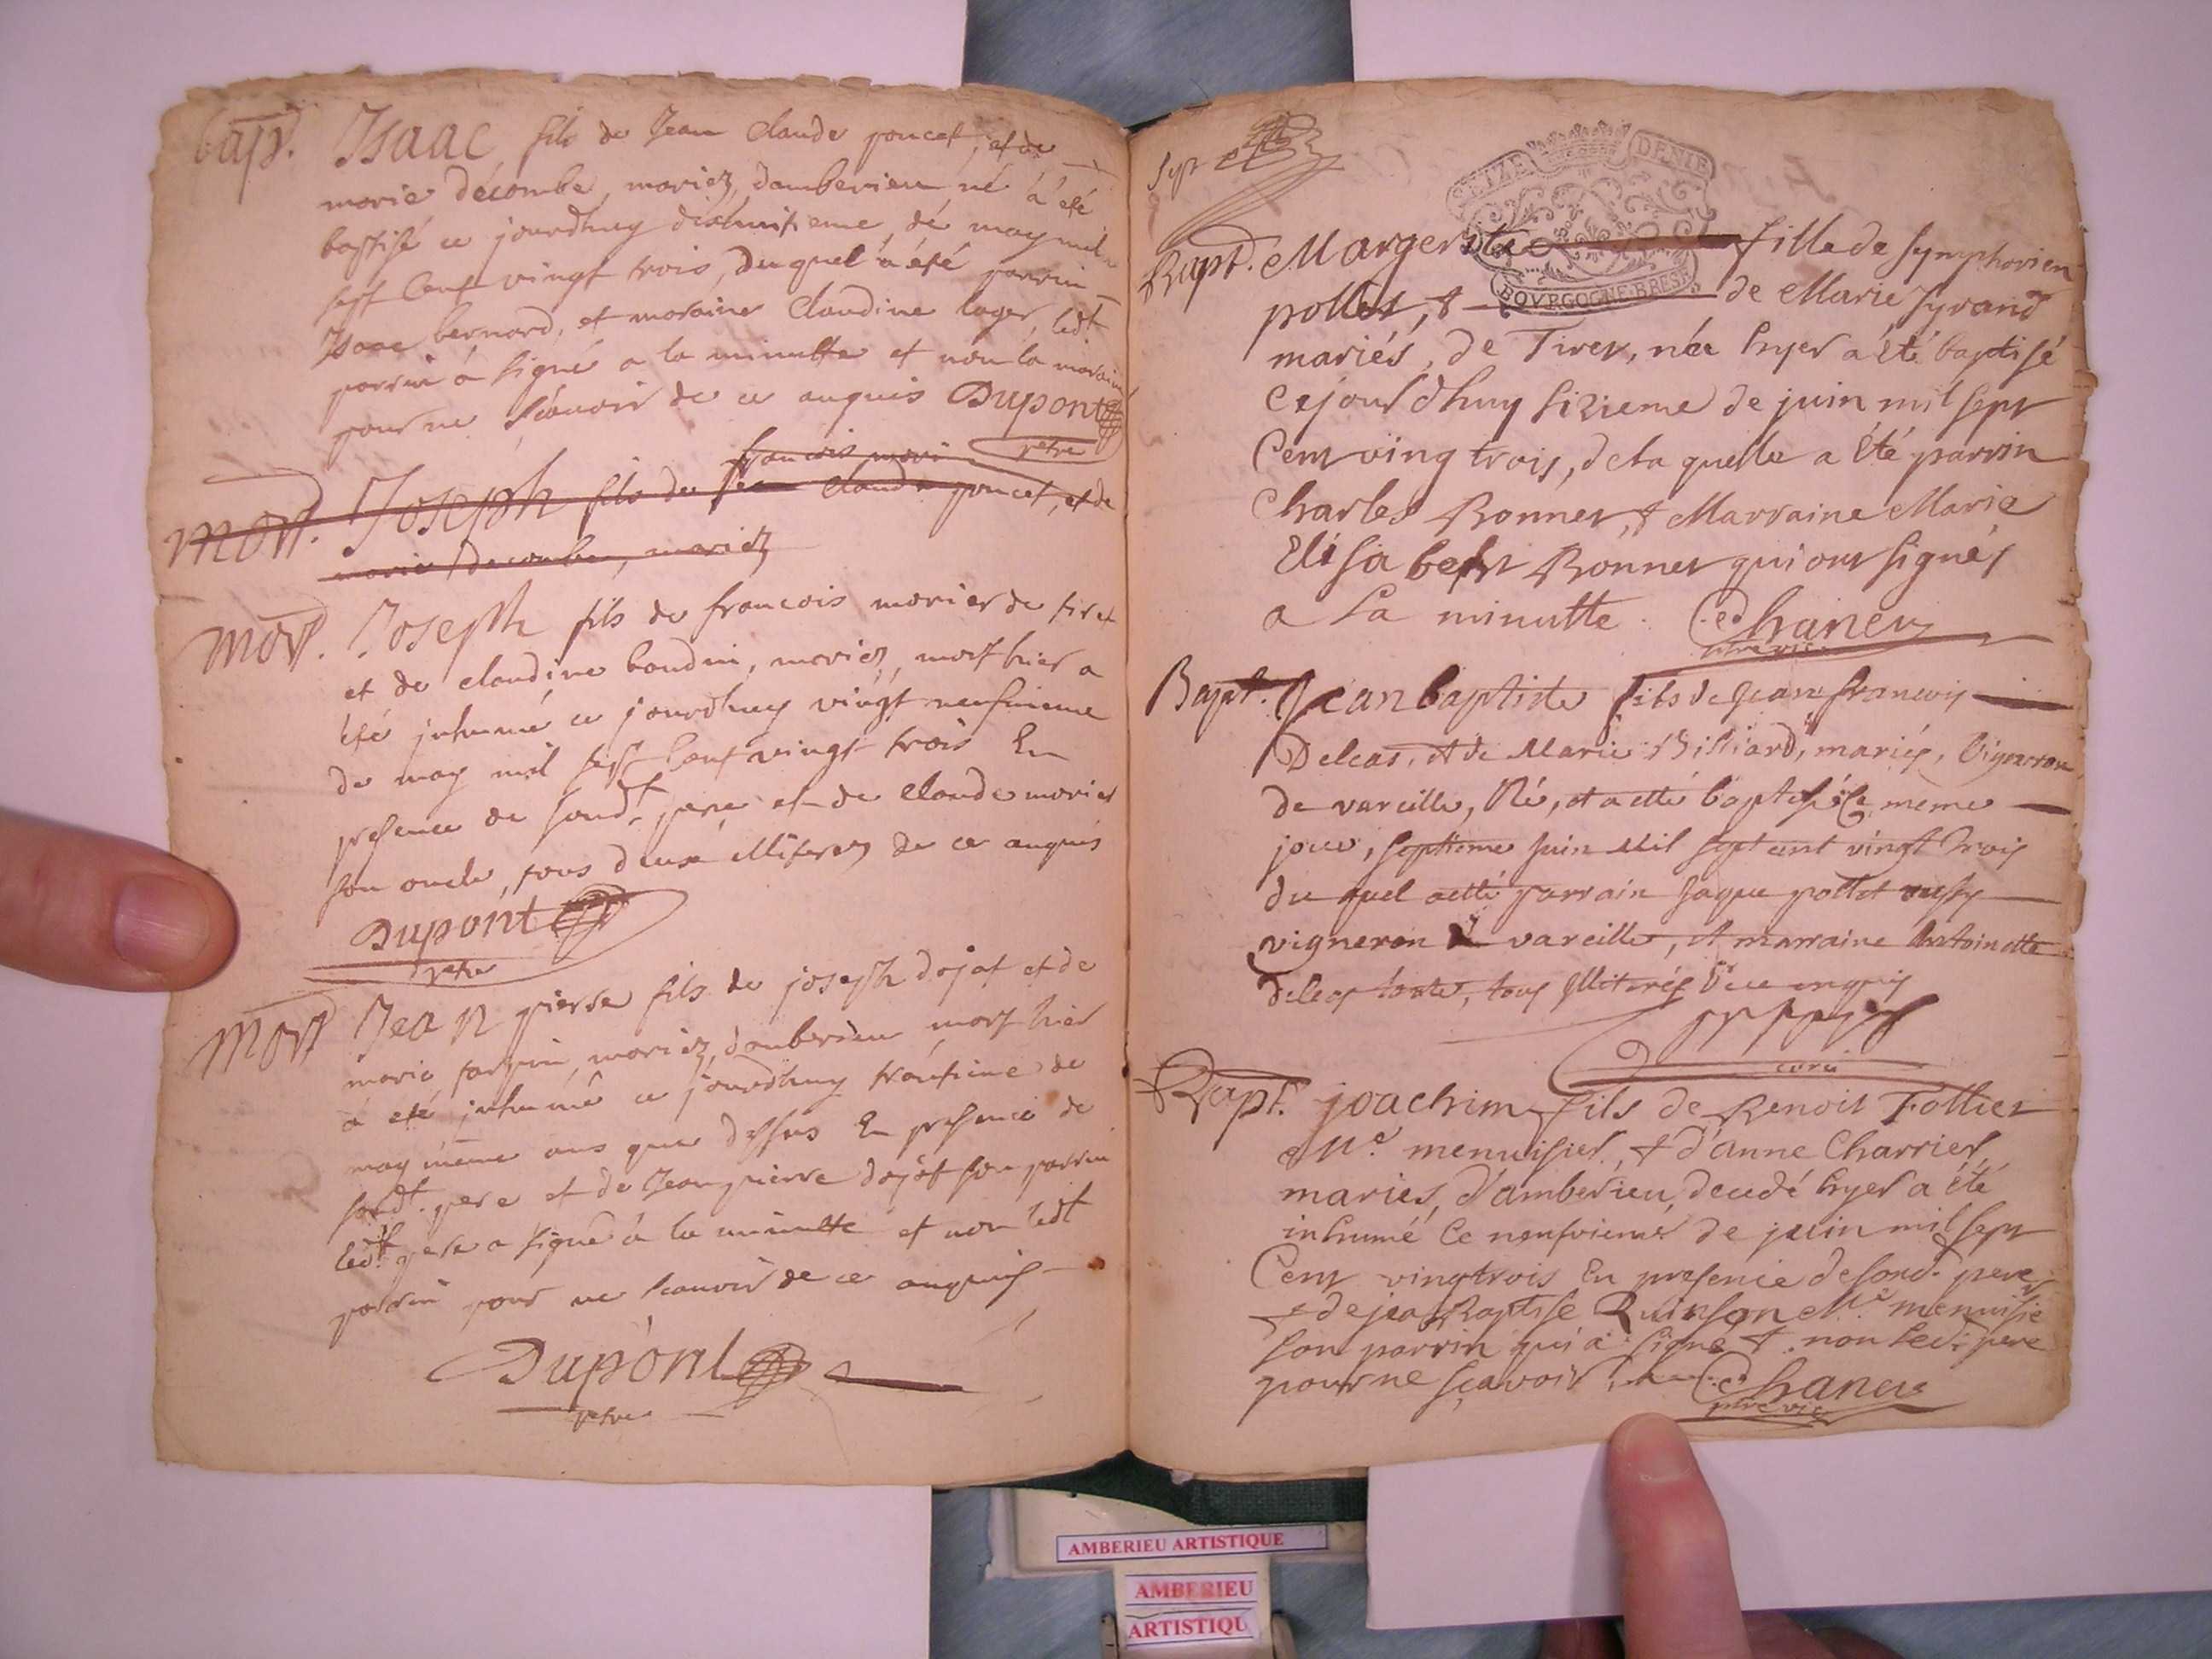 bap. Isaac fils de Jean Claude poncet, et de
marie décombe, mariez, damberieu né à été
baptisé ce jourdhuy dixhuitieme dé may mil
sept Cent vingt trois, duquel à été parrin
Isaac bernard, et maraine Claudine lager, ledt
parrin à signé a la minutte et non la maraine
pour ne scavoir de ce enquis Dupont
ptre
francois mori
mort. Joseph fils de Jean Claude poncet, et de
marie decombe, mariez
mort. Joseph fils de francois morier de tiret
et de claudine baudin, mariez, mort hier a
été inhumé ce jourdhuy vingt neufvieme
de may mil sept Cent vingt trois En
presence de sondt. pere et de Claude morier
son oncle, tous deux illiterez de ce enquis
Dupont
ptre
mort Jean pierre fils de joseph dojat et de
marie, mariez, damberieu mort hier
à été inhumé ce jourdhuy trantieme de
may même ans que dessus En presence de
sondt. pere et de Jean pierre dojat son parrin
ledt. pere a signé à la minutte et non ledt
parrin pour ne scavoir de ce enquis
Dupont
ptre
Sept
SEIZE DENIE
BOURGOGNE BRESSE
Bapt. Margerite fille de Symphorien
pollet, & de Marie Syrand
mariés, de Tiret, née hyer a été baptisé
Cejourdhuy sixieme de juin mil sept
Cent ving trois, de la quelle a été parrin
Charles Bonnet, & Marraine Marie
Elisabeht Bonnet qui ont signés
a La minutte. Chaney
ptre vic.
Bapt. Jean baptiste fils de Jean francois
Deleas, et de Marie Billiard, mariés, Vigneron
de vareille, Né, et a etté baptisé le meme
jour, septieme Juin Mil sept cent vingt trois
du quel aetté parrain Jaque pollet aussy
vigneron à vareille, et marraine Antoinette
deleas tante, tous illiterés de ce enquis
curé
Bapt. joachim fils de Benoit Tollier
Me. menuisier, & d'anne Charrier
mariés, d'amberieu, decedé hyer a été
inhumé le neufvieme de juin mil sept
Cent vingtrois En presence desond. pere
& de jea Baptise Quinson Me. menuisie
son parrin qui à signé & non led. pere
pour ne sçavoir, Chaney
ptre vic
AMBERIEU ARTISTIQUE
AMBERIEU
ARTISTIQU